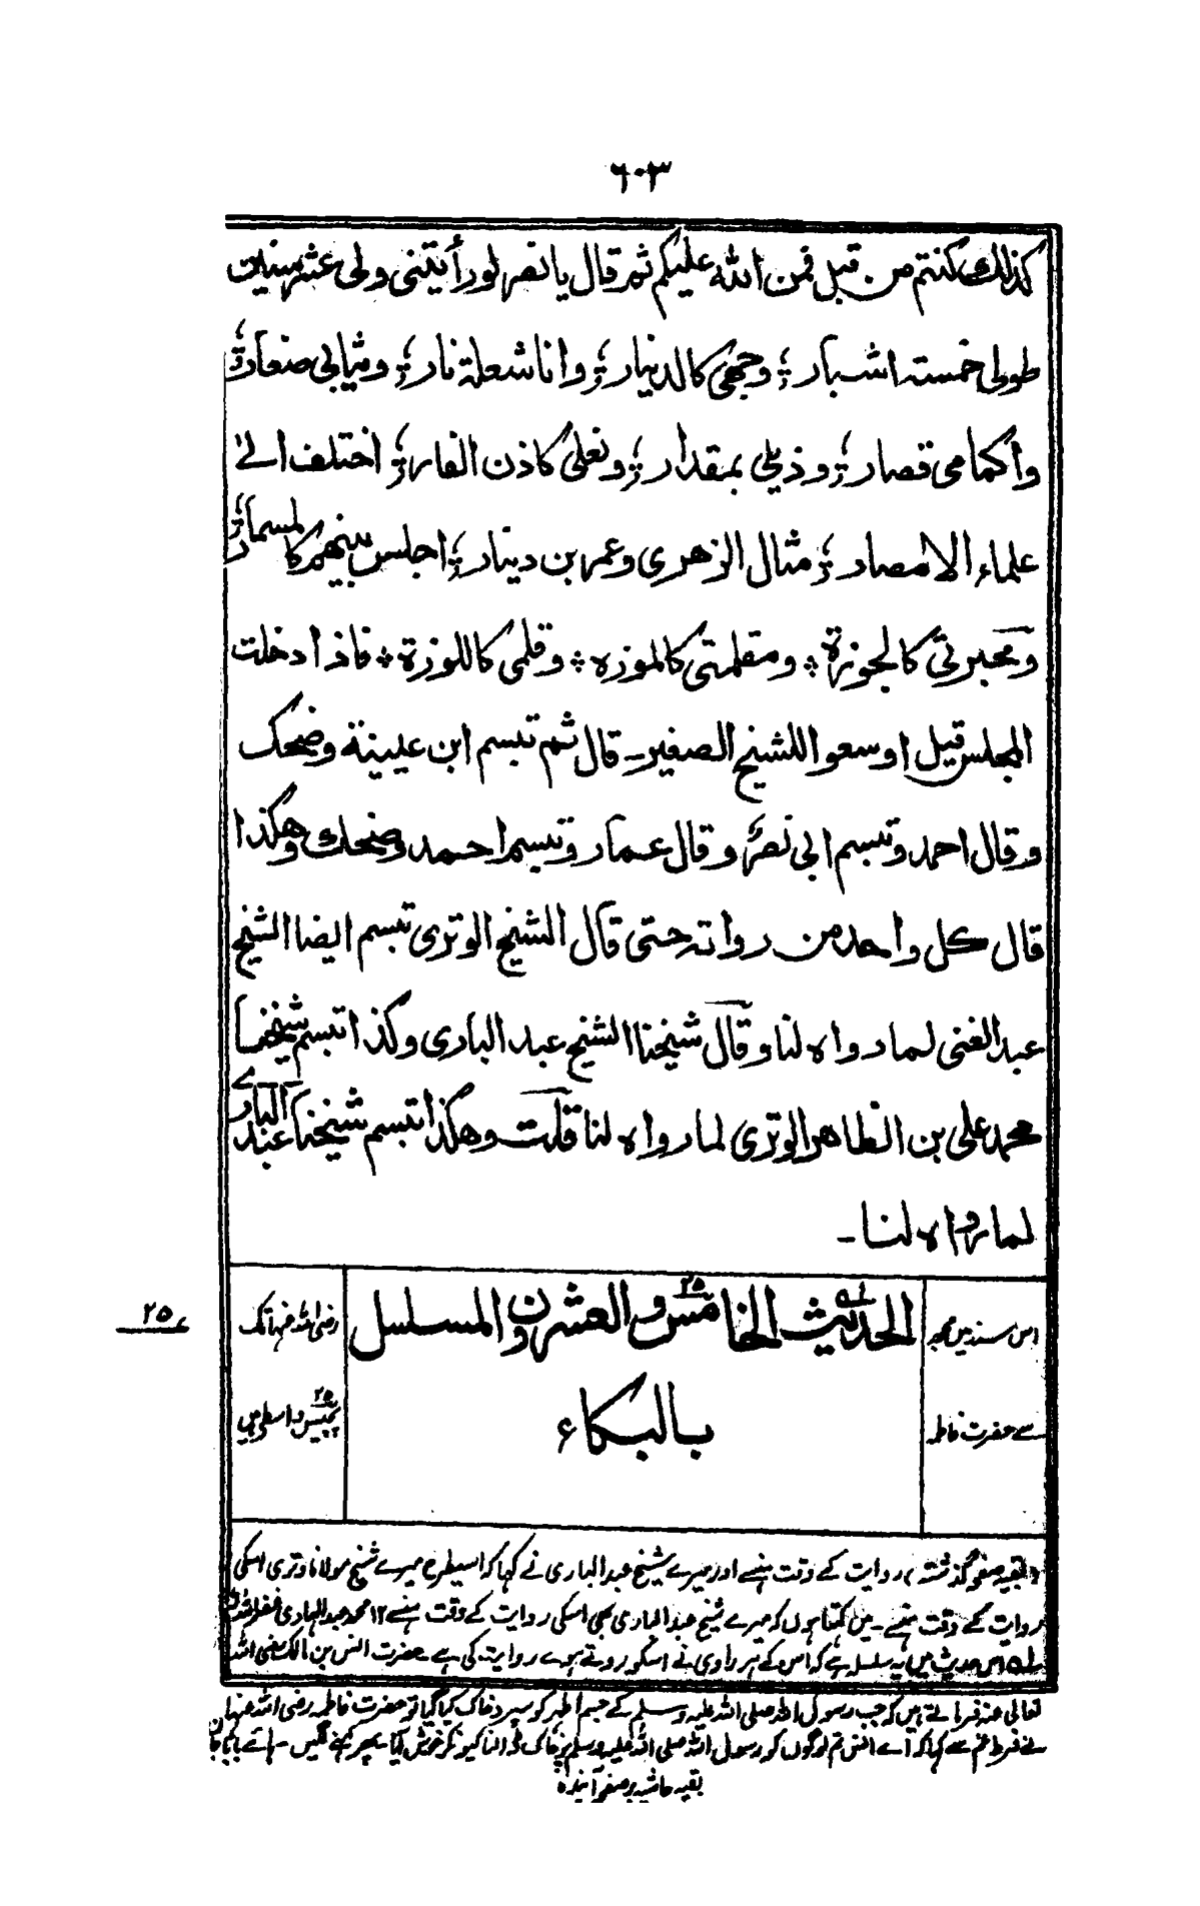 ٦٠٣
كذلك كنتم من قبل فمن الله عليكم ثم قال يا نصر لو رأيتني ولي عشر سنين
طولي خمسة اشبار ؛ وجهي كالدينار ؛ وانا شعلة نار ؛ وثيابي صغار ؛
وأكمامي قصار ؛ وذيلي بمقدار ؛ ونعلي كاذن الفار ؛ اختلف الى
علماء الامصار ؛ مثال الزهري وعمر بن دينار ؛ اجلس بينهم كالمسمار ؛
ومحبرتي كالجوزة ؞ ومقلمتي كالموزه ؞ وقلمي كاللوزة ؞ فاذا دخلت
المجلس قيل اوسعوا للشيخ الصغير ـ قال ثم تبسم ابن عيينة وضحك
وقال احمد وتبسم ابي نصر وقال عمار وتبسم احمد وضحك وهكذا
قال كل واحد من رواته حتى قال الشيخ الوتري تبسم ايضا الشيخ
عبد الغني لما رواه لنا وقال شيخنا الشيخ عبد الباري وكذا تبسم شيخنا
محمد علي بن الظاهر الوتري لما رواه لنا قلت وهكذا تبسم شيخنا عبد الباري
لما رواه لنا ـ
اس سند میں مجھ
سے حضرت فاطمہ
الحدیث الخامس والعشرون المسلسل
بالبكاء
رضی اللہ عنہا تک
پچیس ۲۵ واسطے ہیں
۲۵
(بقیہ صفحہ گذشتہ) روایت کے وقت ہنسے اور میرے شیخ عبد الباری نے کہا کہ اسیطرح میرے شیخ مولانا وتری اسکی
روایت کے وقت ہنسے ـ میں کہتا ہوں کہ میرے شیخ عبد الباری بھی اسکی روایت کے وقت ہنسے ۱۲ محمد عبد الہادی
اس حدیث میں یہ سلسل ہے کہ اس کے ہر راوی نے اسکو روتے ہوے روایت کی ہے ـ حضرت انس بن مالک رضی اللہ
تعالی عنہ فرماتے ہیں کہ جب رسول اللہ صلی اللہ علیہ وسلم کے جسم اطہر کو سپرد خاک کیا گیا تو حضرت فاطمہ رضی اللہ عنہا
نے فرط غم سے کہا کہ اے انس تم لوگوں کو رسول اللہ صلی اللہ علیہ وسلم پر خاک ڈالنا کیونکر خوش کیا پھر کہنے لگیں ـ ہائے باباجان
بقیہ حاشیہ بر صفحہ آیندہ